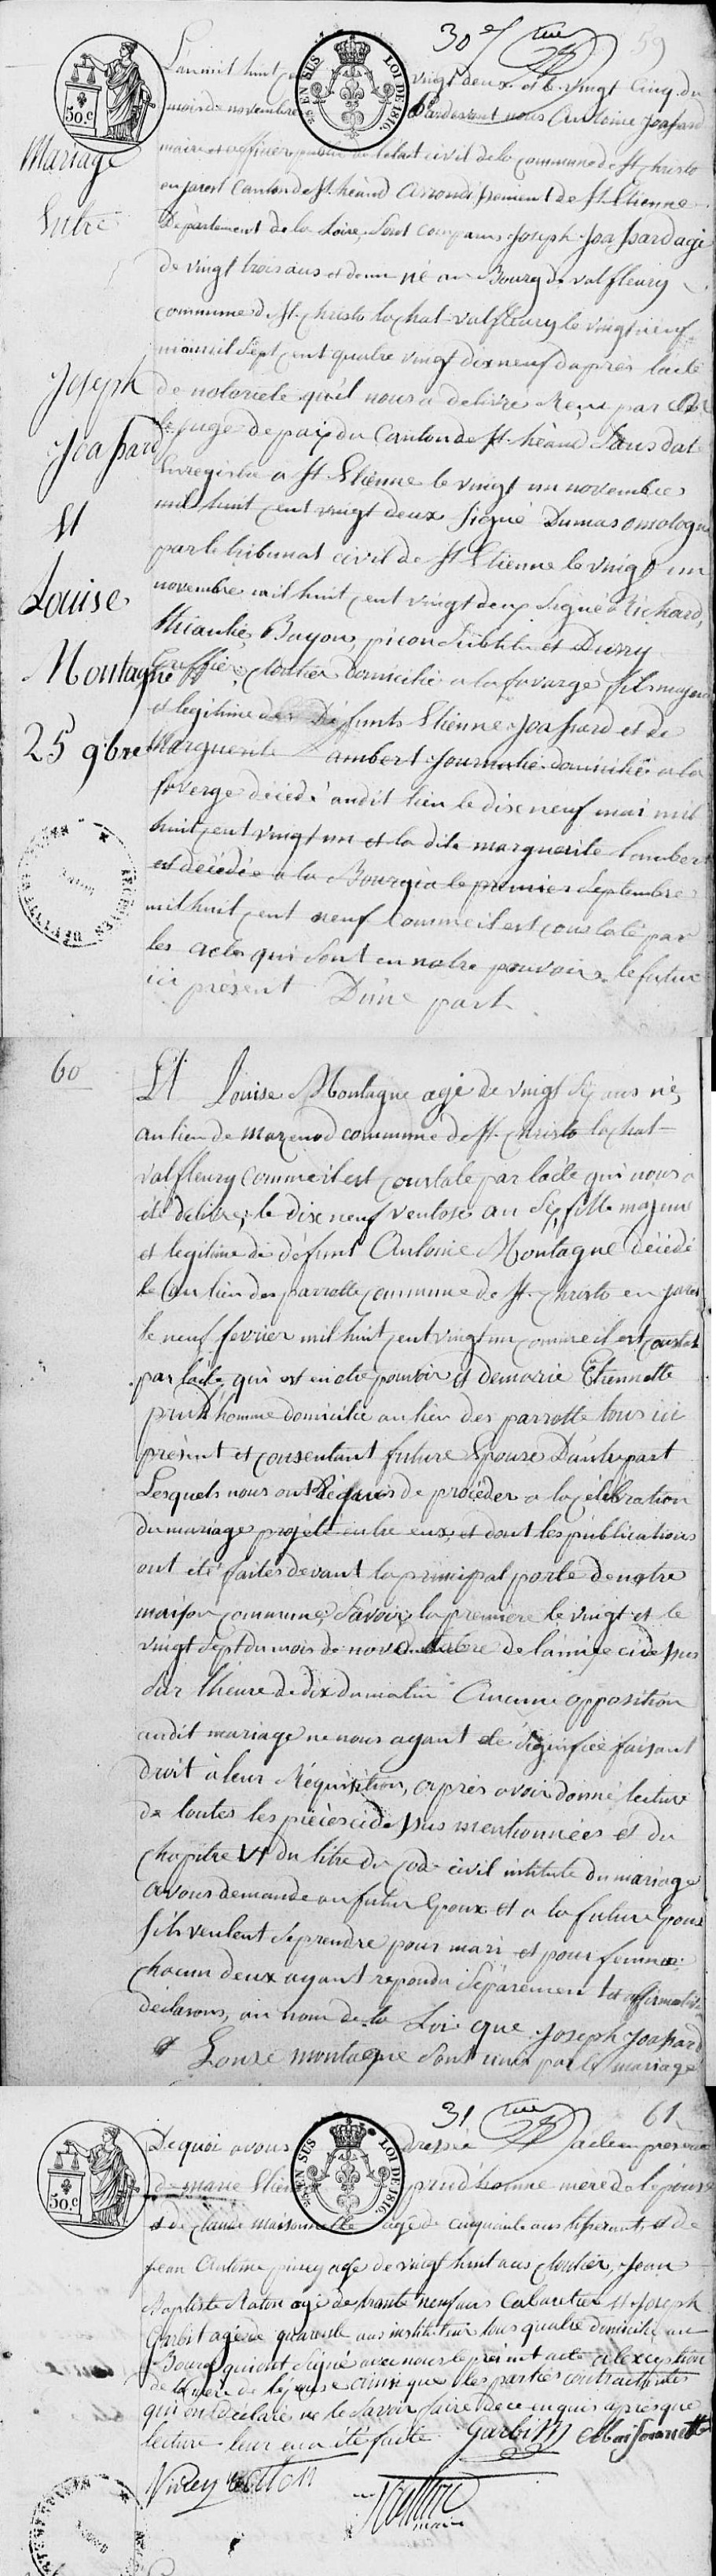 30e
59
50.c
EN SUS
LOI DE 1816.
L'an mil huit cent vingt deux et le vingt cinq du
mois de novembre Pardevant nous Antoine Joassard
maire et officier public de l'etat civil de la commune de St Christo
en jarest Canton de St héand Arrondissement de St Etienne
Département de la Loire, Sont comparus Joseph Joassard agé
de vingt trois ans et demi né au Bourg de valfleury
commune de St Christo lachat-valfleury le vingt neuf
mai mil Sept cent quatre vingt dix neuf d'après l'acte
de notoriété qu'il nous a délivré Reçu par
le juge de paix du Canton de St héand Sans date
Enregistré a St Etienne le vingt un novembre
mil huit cent vingt deux Signé Dumas omologué
par le tribunal civil de St Etienne le vingt un
novembre mil huit cent vingt deux Signé Richard,
Bayon, picon et Durry
Greffier, cloutier domicilié a la favarge fils majeur
et legitime des Défunts Etienne Joassard et de
Marguerite Lambert Journalié domicilié a la
faverge décédé audit lieu le dix neuf mai mil
huit cent vingt un et la dite marguerite lambert
est décédée a la Bourgia le premier Septembre
mil huit cent neuf Comme il est constaté par
les actes qui Sont en notre pouvoir le futur
ici présent D'une part
Mariage
Entre
Joseph
Joassard
Et
Louise
Montagne
25 9bre
60
Et Louise Montagne agé de vingt Six ans né,
au lieu de mazenod commune de St Christo lachat-
valfleury comme il est constaté par l'acte qui nous a
été délivré, le dix neuf ventose an Six, fille majeure
et legitime de défunt Antoine Montagne décédé
le au lieu des parrotte commune de St Christo en jarest
le neuf fevrier mil huit cent vingt un comme il est constaté
par l'acte qui est en notre pouvoir et de marie Etiennette
prud'homme domicilie au lieu des parrotte tous ici
présent et consentant future Epouse D'autre part
Lesquels nous ont Réquis de procéder a la célébration
du mariage projeté entre eux, et dont les publications
ont été faites devant la principal porte de notre
maison commune, Savoir, la premiere le vingt et le
vingt Sept du mois de d'octobre de l'année ci dessus
Sur l'heure de dix du matin Aucune opposition
audit mariage ne nous ayant été Signifiée faisant
droit à leur Réquisition, après avoir donné lecture
de toutes les pièces ci dessus mentionnées et du
chapitre VI du titre du code civil intitulé du mariage
avons demandé au futur Epoux et a la future Epouse
S'ils veulent Se prendre pour mari et pour femme
chacun deux ayant repondu Séparement et affirmativement
déclarons, au nom de la Loi que Joseph Joassard
et Louise montagne Sont unis par le mariage
31
61
50.c
EN SUS
LOI DE 1816.
De quoi avons dressé acte en presence
de marie Etiennette prud'homme mère de l'épouse
et de Claude maisonnette agé de cinquante ans tisserant, et de
jean Antoine piney agé de vingt huit ans cloutier, Jean
Baptiste Raton agé de trente neuf ans Cabaretier et Joseph
Garbit agé de quarente ans instituteur tous quatre domicilié au
Bourg qui ont signé avec nous le présent acte a l'exception
de la mère de l'épouse ainsi que les parties contractantes
qui ont déclaré ne le Savoir faire de ce enquis après que
lecture leur en a été faite Garbit Maisonnette
Piney Ratton
maire